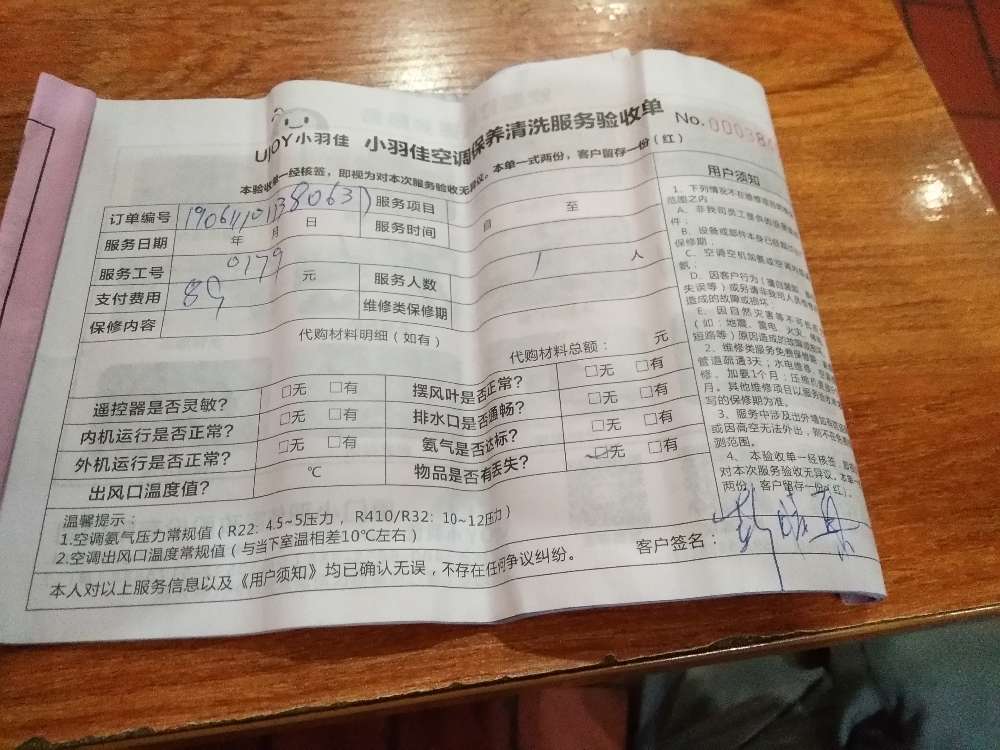 UJOY小羽佳 小羽佳空调保养清洗服务验收单 No.
本验收单一经核签，即视为对本次服务验收无异议。本单一式两份，客户留存一份（红）
订单编号 服务项目
服务日期 年 月 日 服务时间 至
服务工号 0179
支付费用 89 元 服务人数 1 人
保修内容 维修类保修期
代购材料明细（如有） 代购材料总额： 元
遥控器是否灵敏？ □无 □有 摆风叶是否正常？ □无 □有
内机运行是否正常？ □无 □有 排水口是否通畅？ □无 □有
外机运行是否正常？ □无 □有 氨气是否达标？ □无 □有
出风口温度值？ ℃ 物品是否有丢失？ □无 □有
温馨提示：
1.空调氨气压力常规值（R22：4.5~5压力，R410/R32：10~12压力）
2.空调出风口温度常规值（与当下室温相差10℃左右）
本人对以上服务信息以及《用户须知》均已确认无误，不存在任何争议纠纷。
客户签名：
用户须知
1、下列情况不在
范围之内
A、非我司员工提供的
件；
B、设备或部件本身已
保修期；
C、空调空机加氨或空调
氨；
D、因客户行为
失误等）或另请非我司人员
造成的故障或损坏
E、因自然灾害等不可
（如：地震、雷电、火灾
短路等）原因造成的故障
2、维修类服务免费保修
管道疏通3天；水电维修
修、加氨1个月；压缩机
月。其他维修项目以服务验收单
写的保修期为准。
3、服务中涉及出外墙
或因高空无法外出，则不在
测范围。
4、本验收单一经核签，即视
对本次服务验收无异议。本单一
两份，客户留存一份（红）。